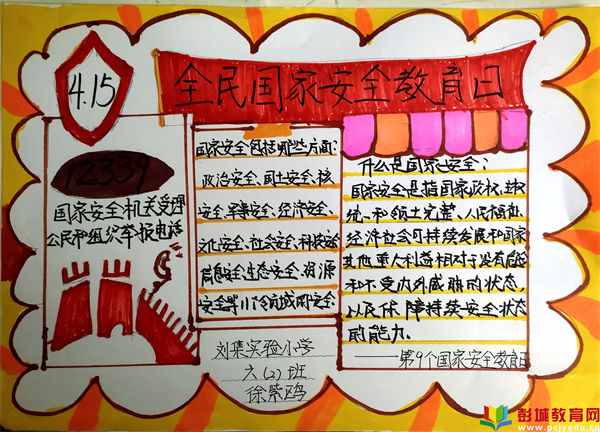 4.15
全民国家安全教育日
12339
国家安全机关受理
公民和组织举报电话
国家安全包括哪些方面:
政治安全、国土安全、核
安全、军事安全、经济安全、
文化安全、社会安全、科技安全
信息安全、生态安全、资源
安全等
什么是国家安全:
国家安全是指国家政权、主权
统一和领土完整、人民福祉、
经济社会可持续发展和国家
其他重大利益相对于没有危险
和不受内外威胁的状态,
以及保障持续安全状态
的能力.
——第9个国家安全教育日
刘集实验小学
六(2)班
徐紫鸥
彭城教育网
www.pcjyedu.cn